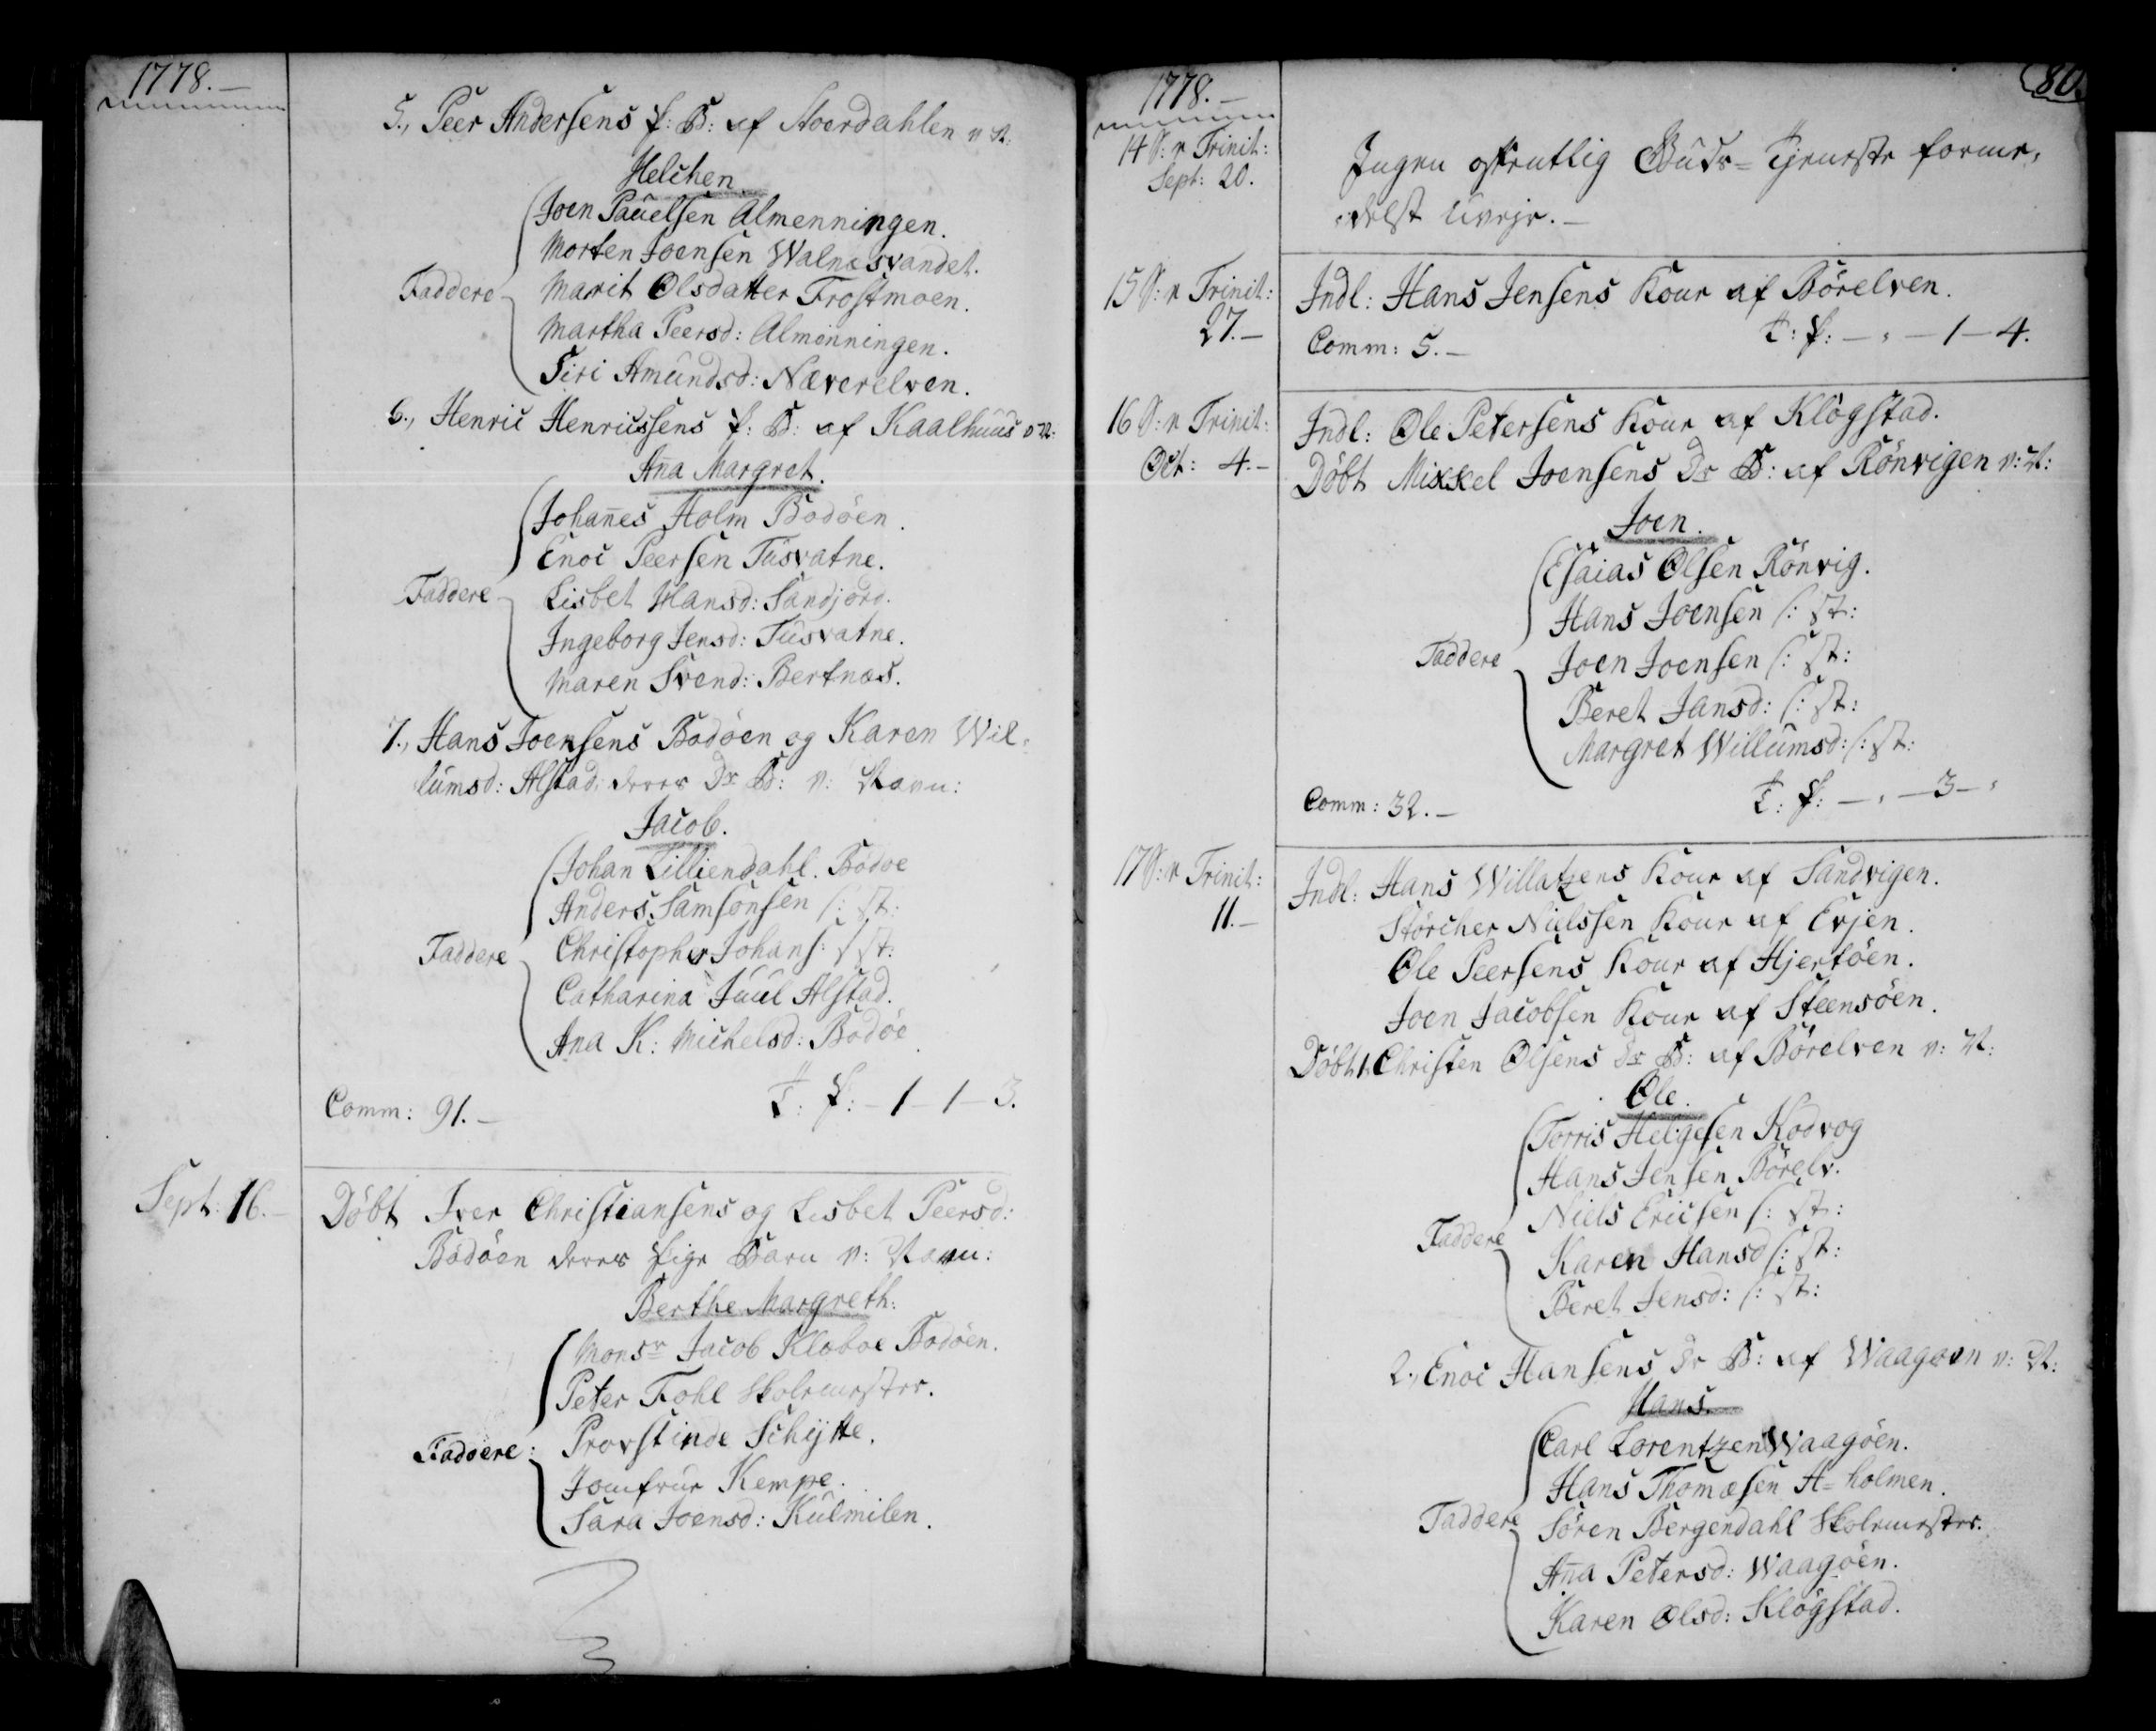 1778.
5., Peer Andersens P: B: af Stoerdahlen v N:
Helchen
Joen Pauelsen Almenningen.
Morten Joensen Walnæsvandet.
Faddere Marit Olsdatter Frostmoen.
Martha Peersd: Almenningen.
Siri Amundsd: Næverelven.
6., Henric Henricssens P: B: af Kaalhuus v N:
Aña Margret.
Johañes Holm Bodöen.
Enoc Peersen Tusvatne.
Faddere Lisbet Hansd: Sandjord.
Ingeborg Jensd: Tusvatne.
Maren Svend: Bertnæs.
7., Hans Joensens Bodöen og Karen Wil-
lumsd: Alstad, deres Dr B: v: Navn:
Jacob.
Johan Lilliendahl. Bodoe
Anders Samsonsen /: st:
Faddere Christopher Johans: / st:
Catharina Juul Alstad.
Ana K: Michelsd: Bodöe
Comm: 91.- T: P: -1-1-3.
Sept: 16.- Döbt Iver Christiansens og Lisbet Peersd:
Bodöen deres Pige Barn v: Navn:
Berthe Margreth:
Monsr Jacob Kloboe Bodöen.
Peter Fohl Skolemester.
Faddere: Provstinde Schytte.
Jomfrue Kempe.
Sara Joensd: Kulmilen.
1778.
80.
14 S: p Trinit: Ingen offentlig Guds-Tjeneste forme-
Sept: 20. delst Uvejr.-
15 S: p Trinit: Indl: Hans Jensens Kone af Börelven.
27.- Comm: 5.- T: P: - , - 1-4.
16 S: p Trinit: Indl: Ole Petersens Kone af Klögstad.
Oct: 4.- Döbt Mikkel Joensens Dr B: af Rönvigen v: N:
Joen.
Esaias Olsen Rönvig.
Hans Joensen /: st:
Faddere Joen Joensen /: st:
Beret Jansd: /: st:
Margret Willumsd: /: st:
Comm: 32.- T: P: - , -3- ,
17 S: p Trinit: Indl: Hans Willatzens Kone af Sandvigen.
11.- Störcher Nielssen Kone af Evjen.
Ole Peersens Kone af Hjertöen.
Joen Jacobsen Kone af Steensöen.
Döbt 1. Christen Olsens Dr B: af Börelven v: N:
Ole.
Torris Helgesen Kodvog
Hans Jensen Börelv.
Niels Ericsen /: st:
Faddere Karen Hansd /: st:
Beret Jensd: /: st:
2., Enoc Hansens Dr B: af Waagöen v: N:
Hans.
Carl Lorentzen Waagöen.
Hans Thomæsen H=holmen.
Faddere Sören Bergendahl Skolemester.
Aña Petersd: Waagöen.
Karen Olsd: Klögstad.